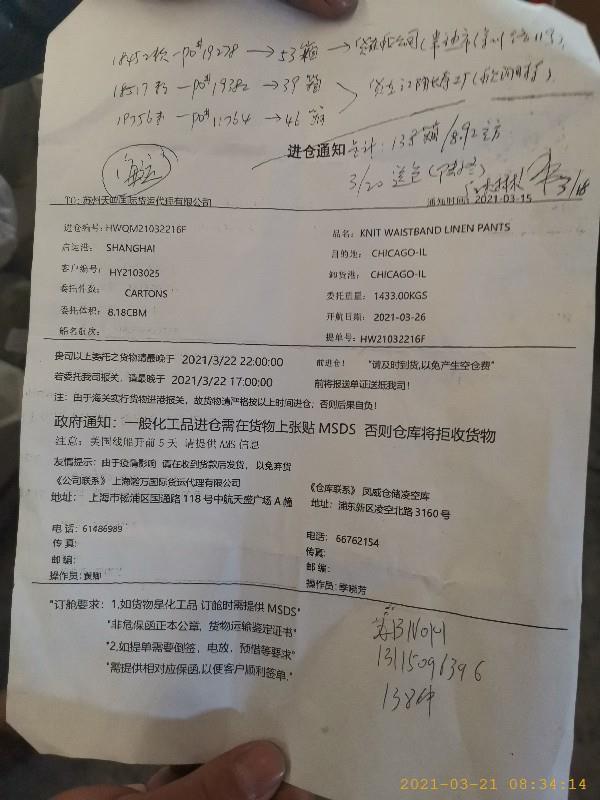 18452款—PO#19278 → 53箱 → 货在
18517款—PO#19382 → 39箱
18756款—PO#11764 → 46箱
进仓通知 合计: 138箱/8.92立方
海运
3/20 送仓
3/18
TO: 苏州天 国际货运代理有限公司
通知时间: 2021-03-15
进仓编号: HWQM21032216F
品名: KNIT WAISTBAND LINEN PANTS
启运港: SHANGHAI
目的地: CHICAGO-IL
客户编号: HY2103025
卸货港: CHICAGO-IL
委托件数: CARTONS
委托重量: 1433.00KGS
委托体积: 8.18CBM
开航日期: 2021-03-26
船名航次:
提单号: HW21032216F
贵司以上委托之货物请最晚于 2021/3/22 22:00:00 前进仓! "请及时到货,以免产生空仓费"
若委托我司报关, 请最晚于 2021/3/22 17:00:00 前将报送单证送纸我司!
注: 由于海关实行货物进港报关, 故货物请严格按以上时间进仓; 否则后果自负!
政府通知: 一般化工品进仓需在货物上张贴 MSDS 否则仓库将拒收货物
注意: 美国线船开前 5 天 请提供 AMS 信息
友情提示: 由于疫情影响 请在收到货款后发货, 以免弃货
《公司联系》上海瀚万国际货运代理有限公司
《仓库联系》凤威仓储凌空库
地址: 上海市杨浦区国通路 118 号中航天盛广场 A 幢
地址: 浦东新区凌空北路 3160 号
电 话: 61486989
电话: 66762154
传 真:
传真:
邮 编:
邮 编:
操作员:
操作员: 季晓芳
"订舱要求: 1,如货物是化工品 订舱时需提供 MSDS"
"非危保函正本公章, 货物运输鉴定证书"
"2,如提单需要倒签, 电放, 预借等要求"
"需提供相对应保函,以便客户顺利签单."
苏B
13115096396
138件
2021-03-21 08:34:14